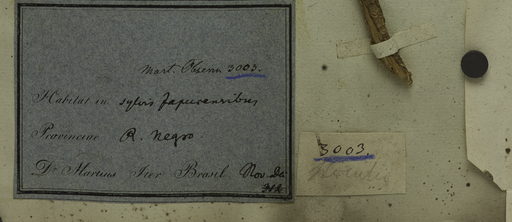 Mart. Observ. 3003.
Habitat in sylvis Japurensibus
Provinciae R. Negro.
Dr. Martius Iter Brasil. Nov. Dec.
3003.